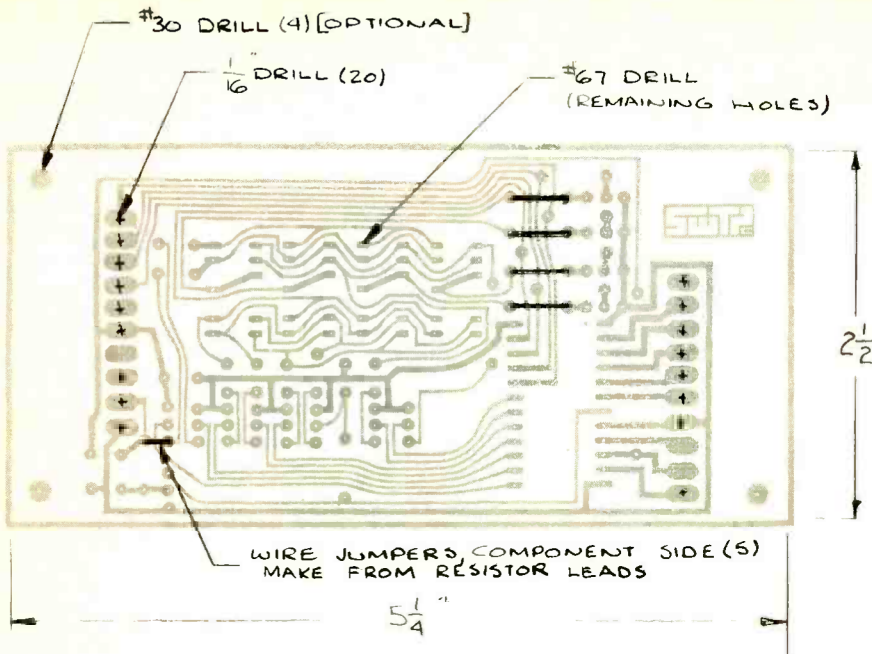 #30 DRILL (4) [OPTIONAL]
1/16" DRILL (20)
#67 DRILL
(REMAINING HOLES)
SWTPC
2 1/2
WIRE JUMPERS, COMPONENT SIDE (5)
MAKE FROM RESISTOR LEADS
5 1/4"